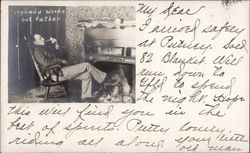 ...ybody works
but father
My Dear
I arrived safely
at Putney. Sold
82 Blanket. Will
run down to
to spend
the night. Hope
this will find you in the
best of spirits. Pretty lonely
riding all along your little
old man